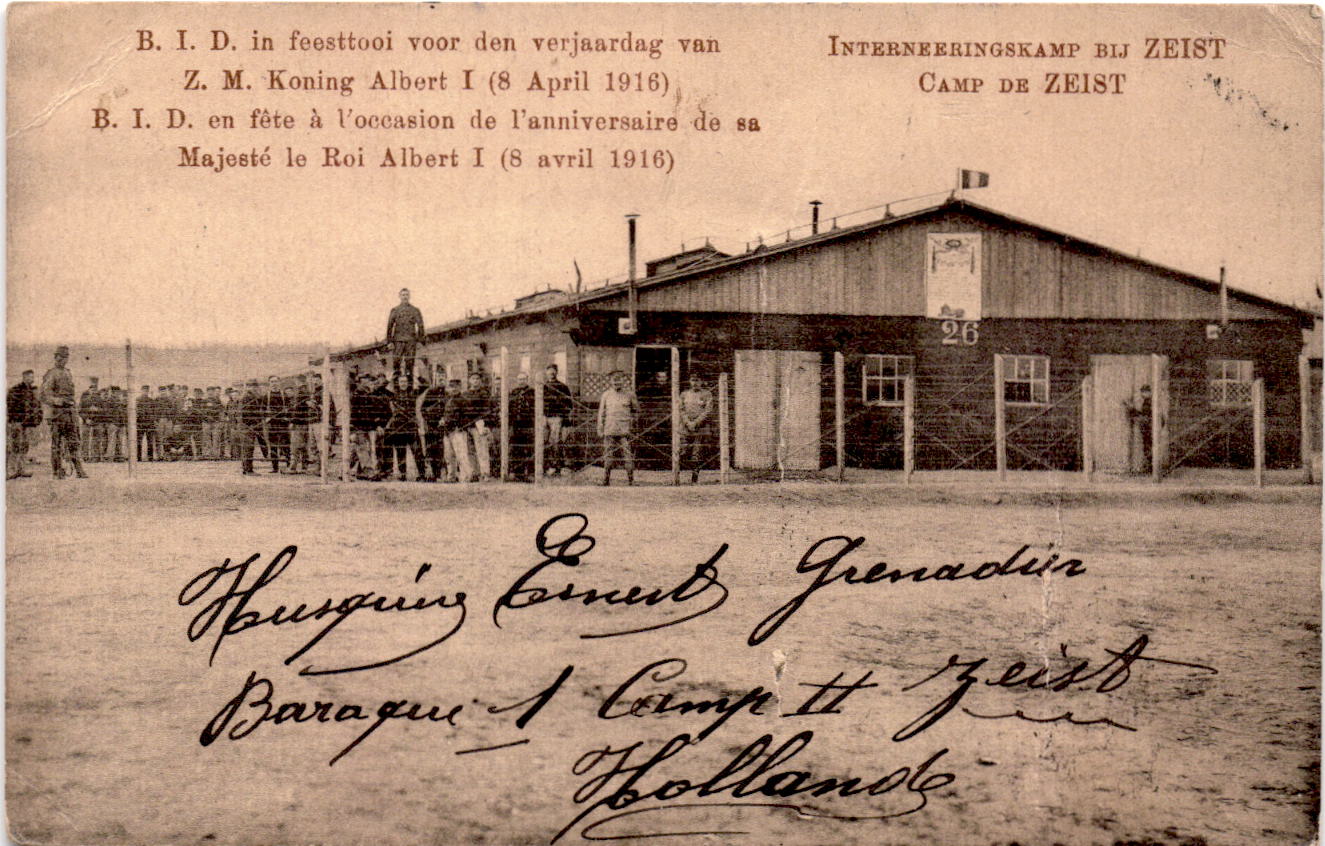 B. I. D. in feesttooi voor den verjaardag van
Z. M. Koning Albert I (8 April 1916)
B. I. D. en fête à l'occasion de l'anniversaire de sa
Majesté le Roi Albert I (8 avril 1916)
INTERNEERINGSKAMP BIJ ZEIST
CAMP DE ZEIST
26
Ernest Grenadier
Baraque 1 Camp II Zeist
Hollande